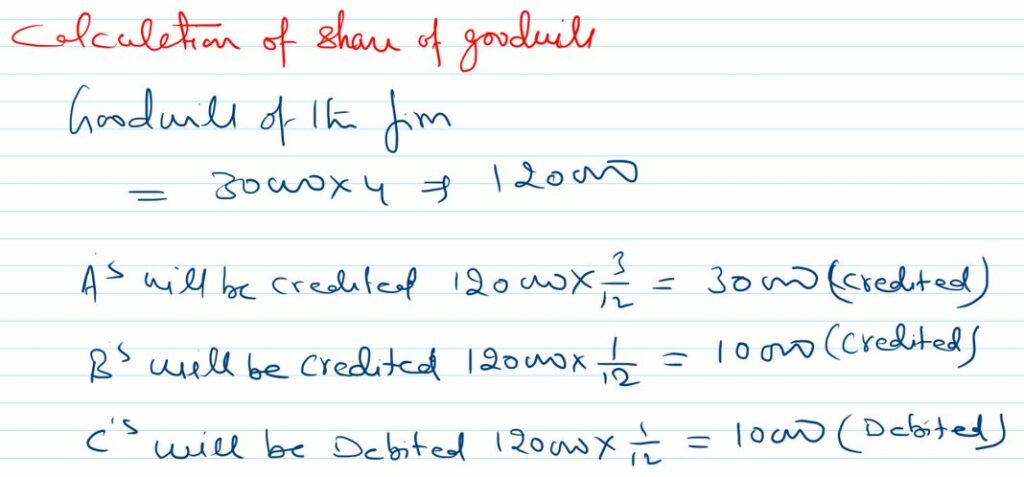 Calculation of share of goodwill
Goodwill of the firm
= 30000 × 4 ⇒ 120000
A's will be credited 120000 × 3/12 = 30000 (credited)
B's will be credited 120000 × 1/12 = 10000 (credited)
C's will be Debited 120000 × 1/12 = 10000 (Debited)